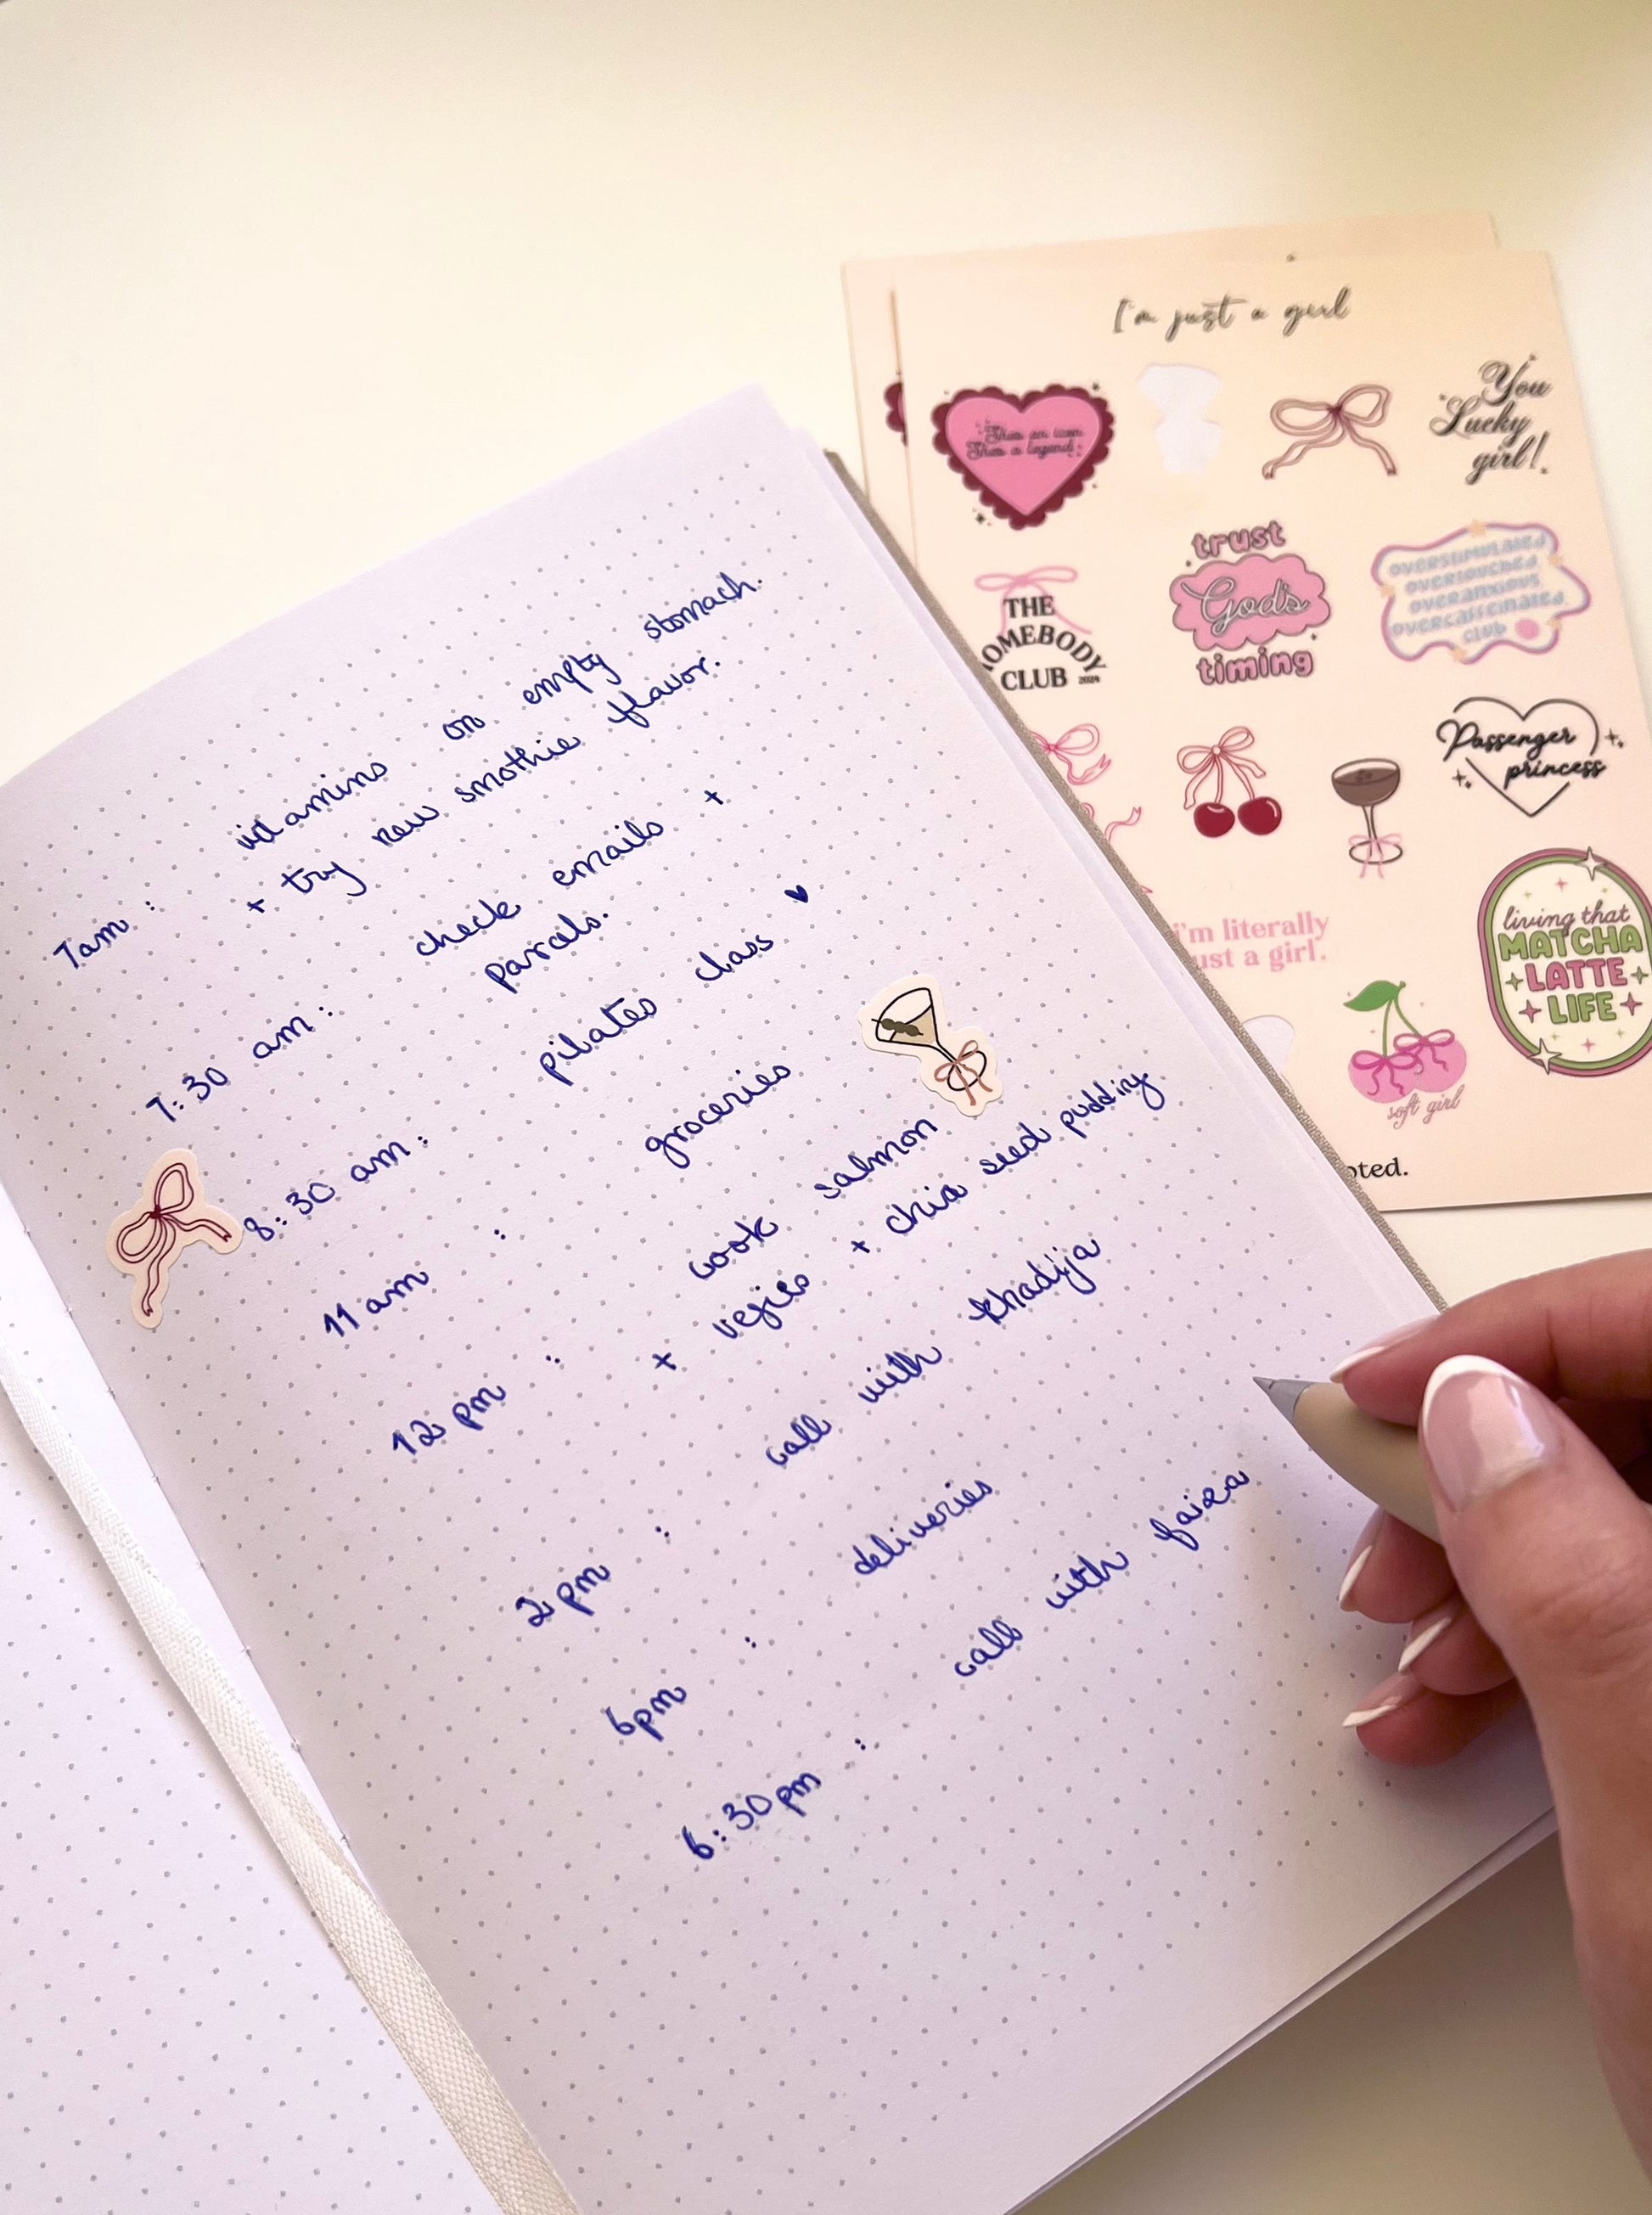 7am : vitamins on empty stomach.
+ try new smothie flavor.
7:30 am : check emails +
parcels.
8:30 am : pilates class ♥
11 am : groceries
12 pm : cook salmon
+ vegies + chia seed pudding
2 pm : call with khadija
6pm : deliveries
6:30 pm : call with faiza
I'm just a girl
She's an icon
She's a legend
You
Lucky
girl!
THE
OMEBODY
CLUB 2024
trust
God's
timing
OVERSTIMULATED
OVERTOUCHED
OVERANXIOUS
OVERCAFFEINATED
CLUB
Passenger
princess
i'm literally
just a girl.
living that
MATCHA
LATTE
LIFE
soft girl
oted.